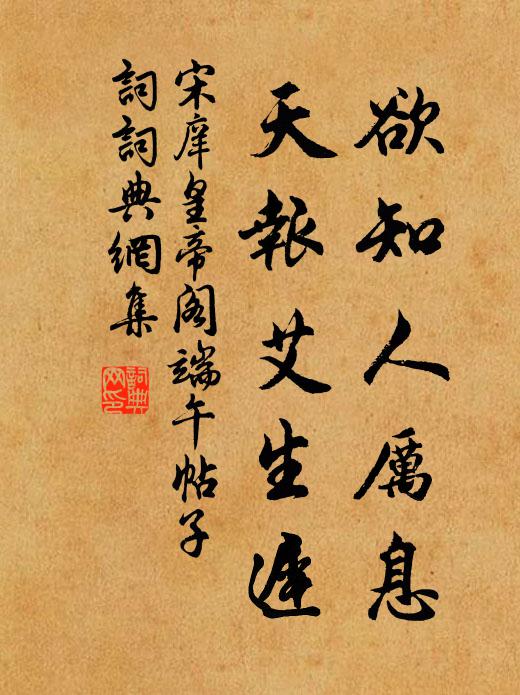 欲知人厲息
天報艾生遲
宋庠皇帝阁端午帖子
詞詞典網集
詞典网印